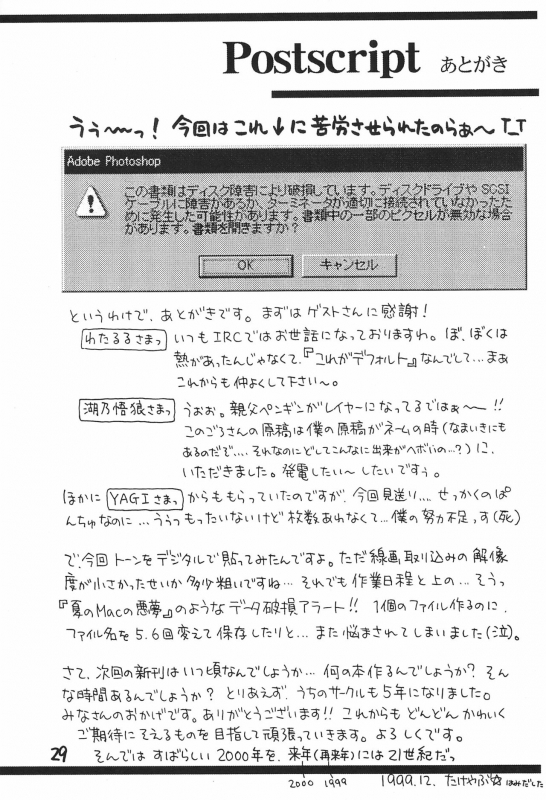 Postscript あとがき
うぅ〜〜っ! 今回はこれ↓に苦労させられたのらぁ〜 T_T
Adobe Photoshop
この書類はディスク障害により破損しています。ディスクドライブや SCSI
ケーブルに障害があるか、ターミネータが適切に接続されていなかったた
めに発生した可能性があります。書類中の一部のピクセルが無効な場合
があります。書類を開きますか?
OK キャンセル
というわけで、あとがきです。まずはゲストさんに感謝!
わたるるさまっ いつもIRCではお世話になっておりますわ。ぼ、ぼくは
熱があったんじゃなくて、『これがデフォルト』なんでして…まぁ
これからも仲よくして下さい〜。
湖乃悟狼さまっ うぉぉ。親父ペンギンがレイヤーになってるではぁ〜〜!!
このごろさんの原稿は僕の原稿がネームの時(なまいきにも
あるのだで…、それなのにどしてこんなに出来がヘボいの…?)に、
いただきました。発電したい〜したいですぅ。
ほかに YAGIさまっ からももらっていたのですが、今回見送り…. せっかくのぱ
んちゅなのに…ううっもったいないけど枚数あわなくて…僕の努力不足っす(死)
で、今回トーンをデジタルで貼ってみたんですよ。ただ線画取り込みの解像
度が小さかったせいか多少粗いですね… それでも作業日程と上の… そうっ
『夏のMacの悪夢』のようなデータ破損アラート!! 1個のファイル作るのに、
ファイル名を5.6回変えて保存したりと… また悩まされてしまいました(泣)。
さて、次回の新刊はいつ頃なんでしょうか… 何の本作るんでしょうか? そん
な時間あるんでしょうか? とりあえず、うちのサークルも5年になりました。
みなさんのおかげです。ありがとうございます!! これからもどんどんかわいく
ご期待にそえるものを目指して頑張っていきます。よろしくです。
29 そんでは すばらしい2000年を、来年(再来年)には21世紀だっ
2000 1999
1999.12. たけやぶ☆ はみだした